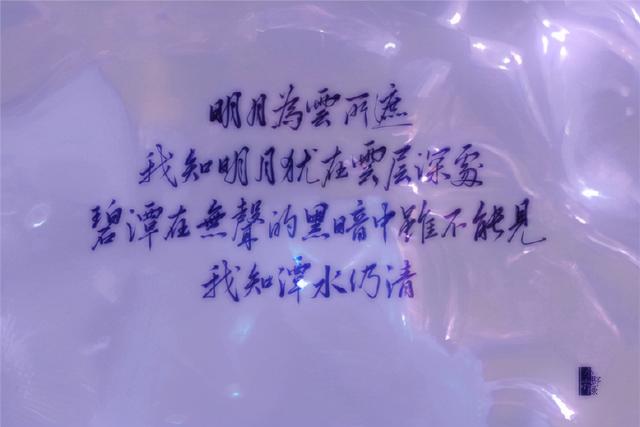 明月為雲所遮
我知明月犹在雲层深處
碧潭在無聲的黑暗中雖不能見
我知潭水仍清